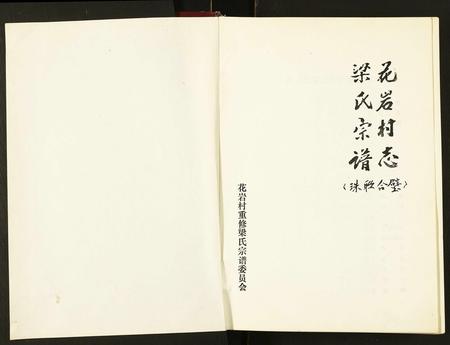 花岩村志
梁氏宗谱
(珠联合璧)
花岩村重修梁氏宗谱委员会